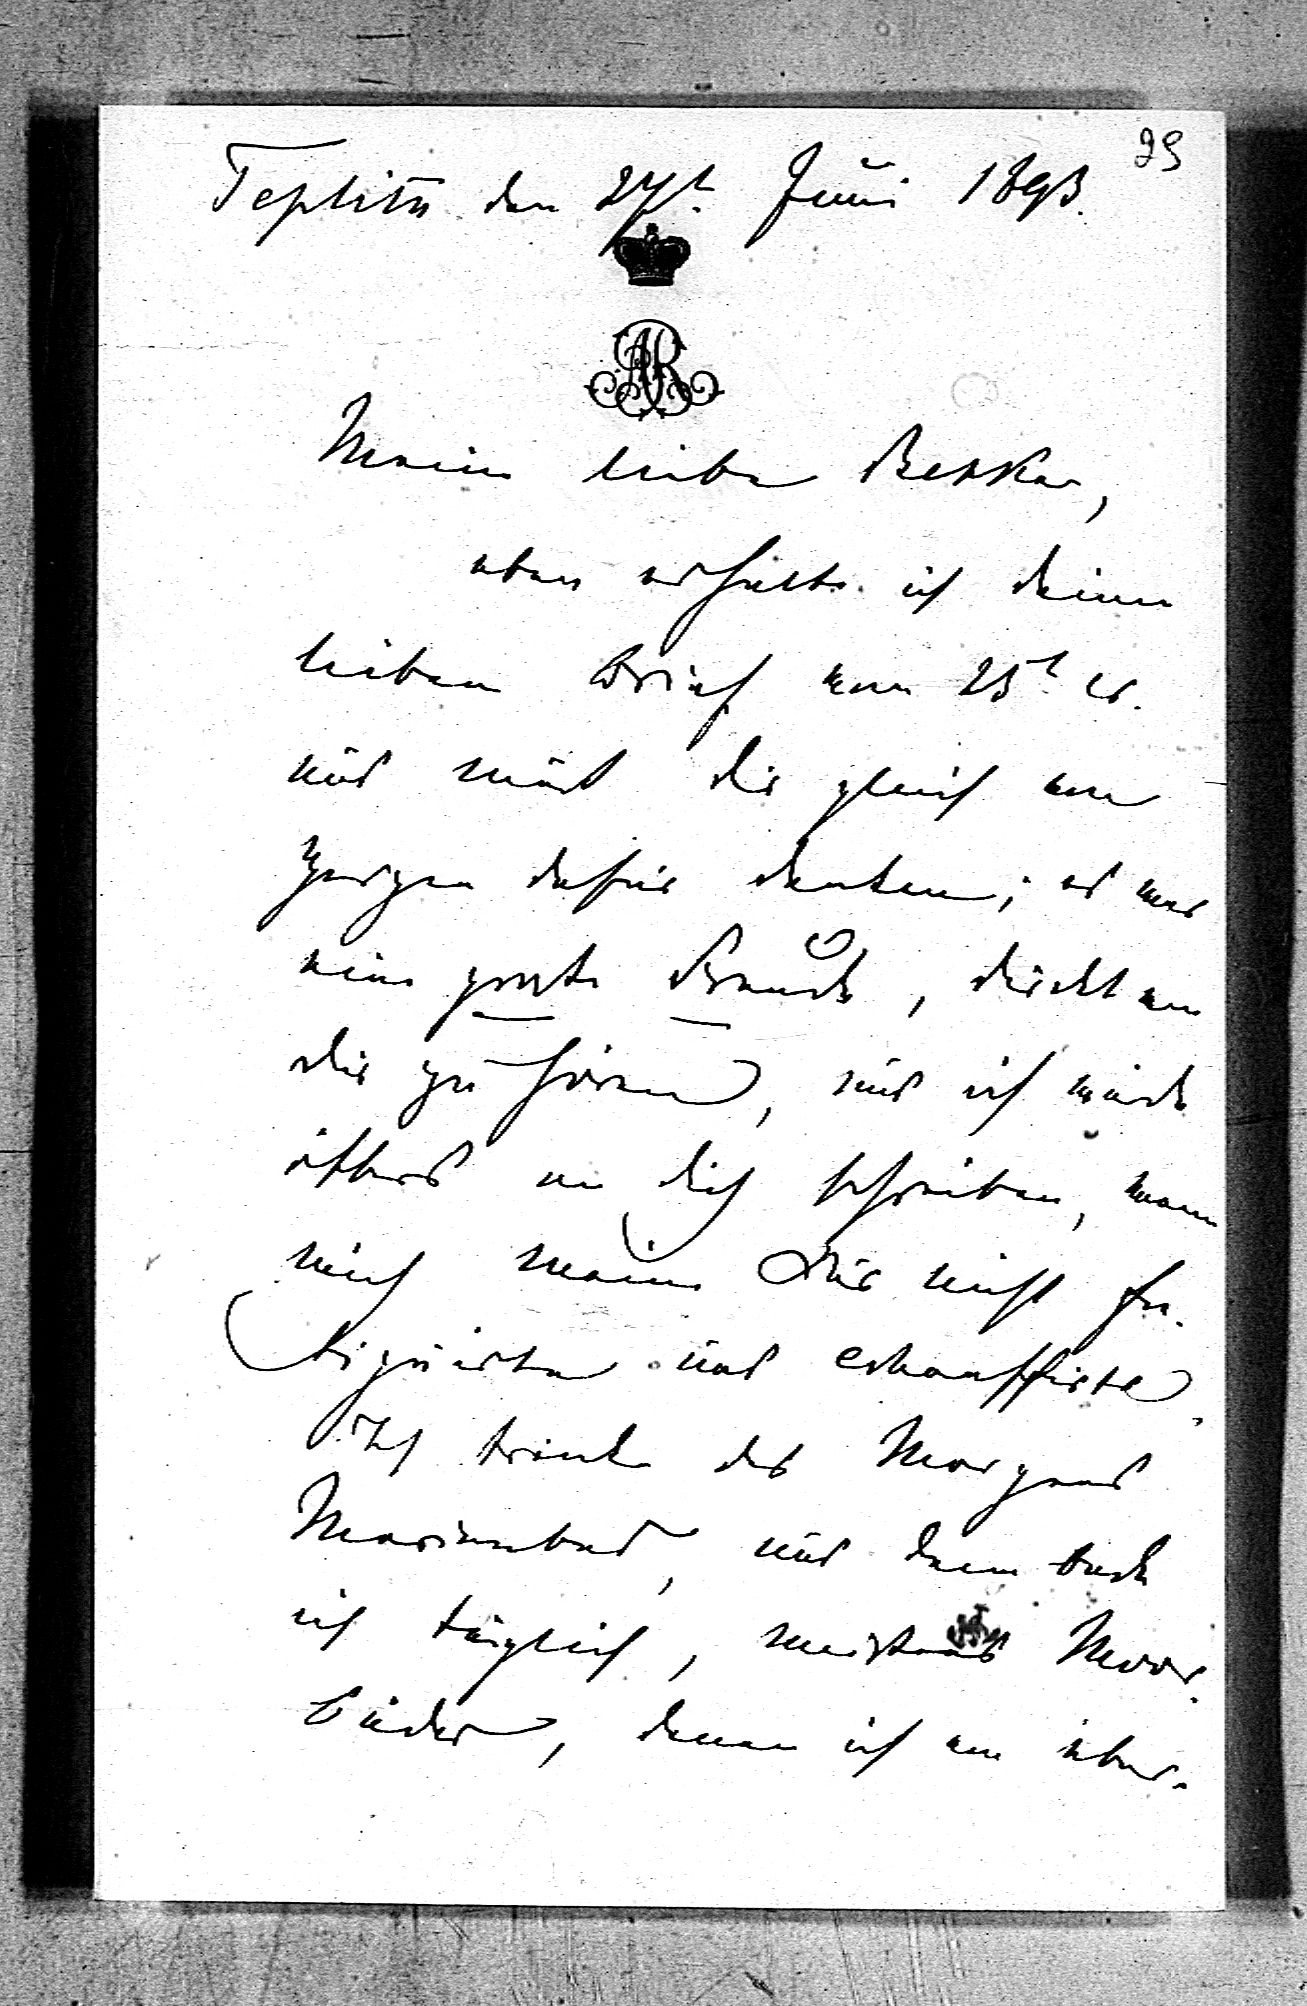 29
Teplitz den 27t. Juni 1893.
AR
Meine liebe Bekka,
eben erhalte ich deinen
lieben Brief vom 25t. cr.
und muß dir gleich von
Herzen dafür danken; es war
eine große Freude, direkt von
dir zu hören, und ich würde
öfters an dich schreiben, wenn
mich meine Kur nicht fa-
tiguirte und echauffirte.
Ich trinke des Morgens
Marienbad, und dann bade
ich täglich, meistens Moor-
bäder, denen ich am